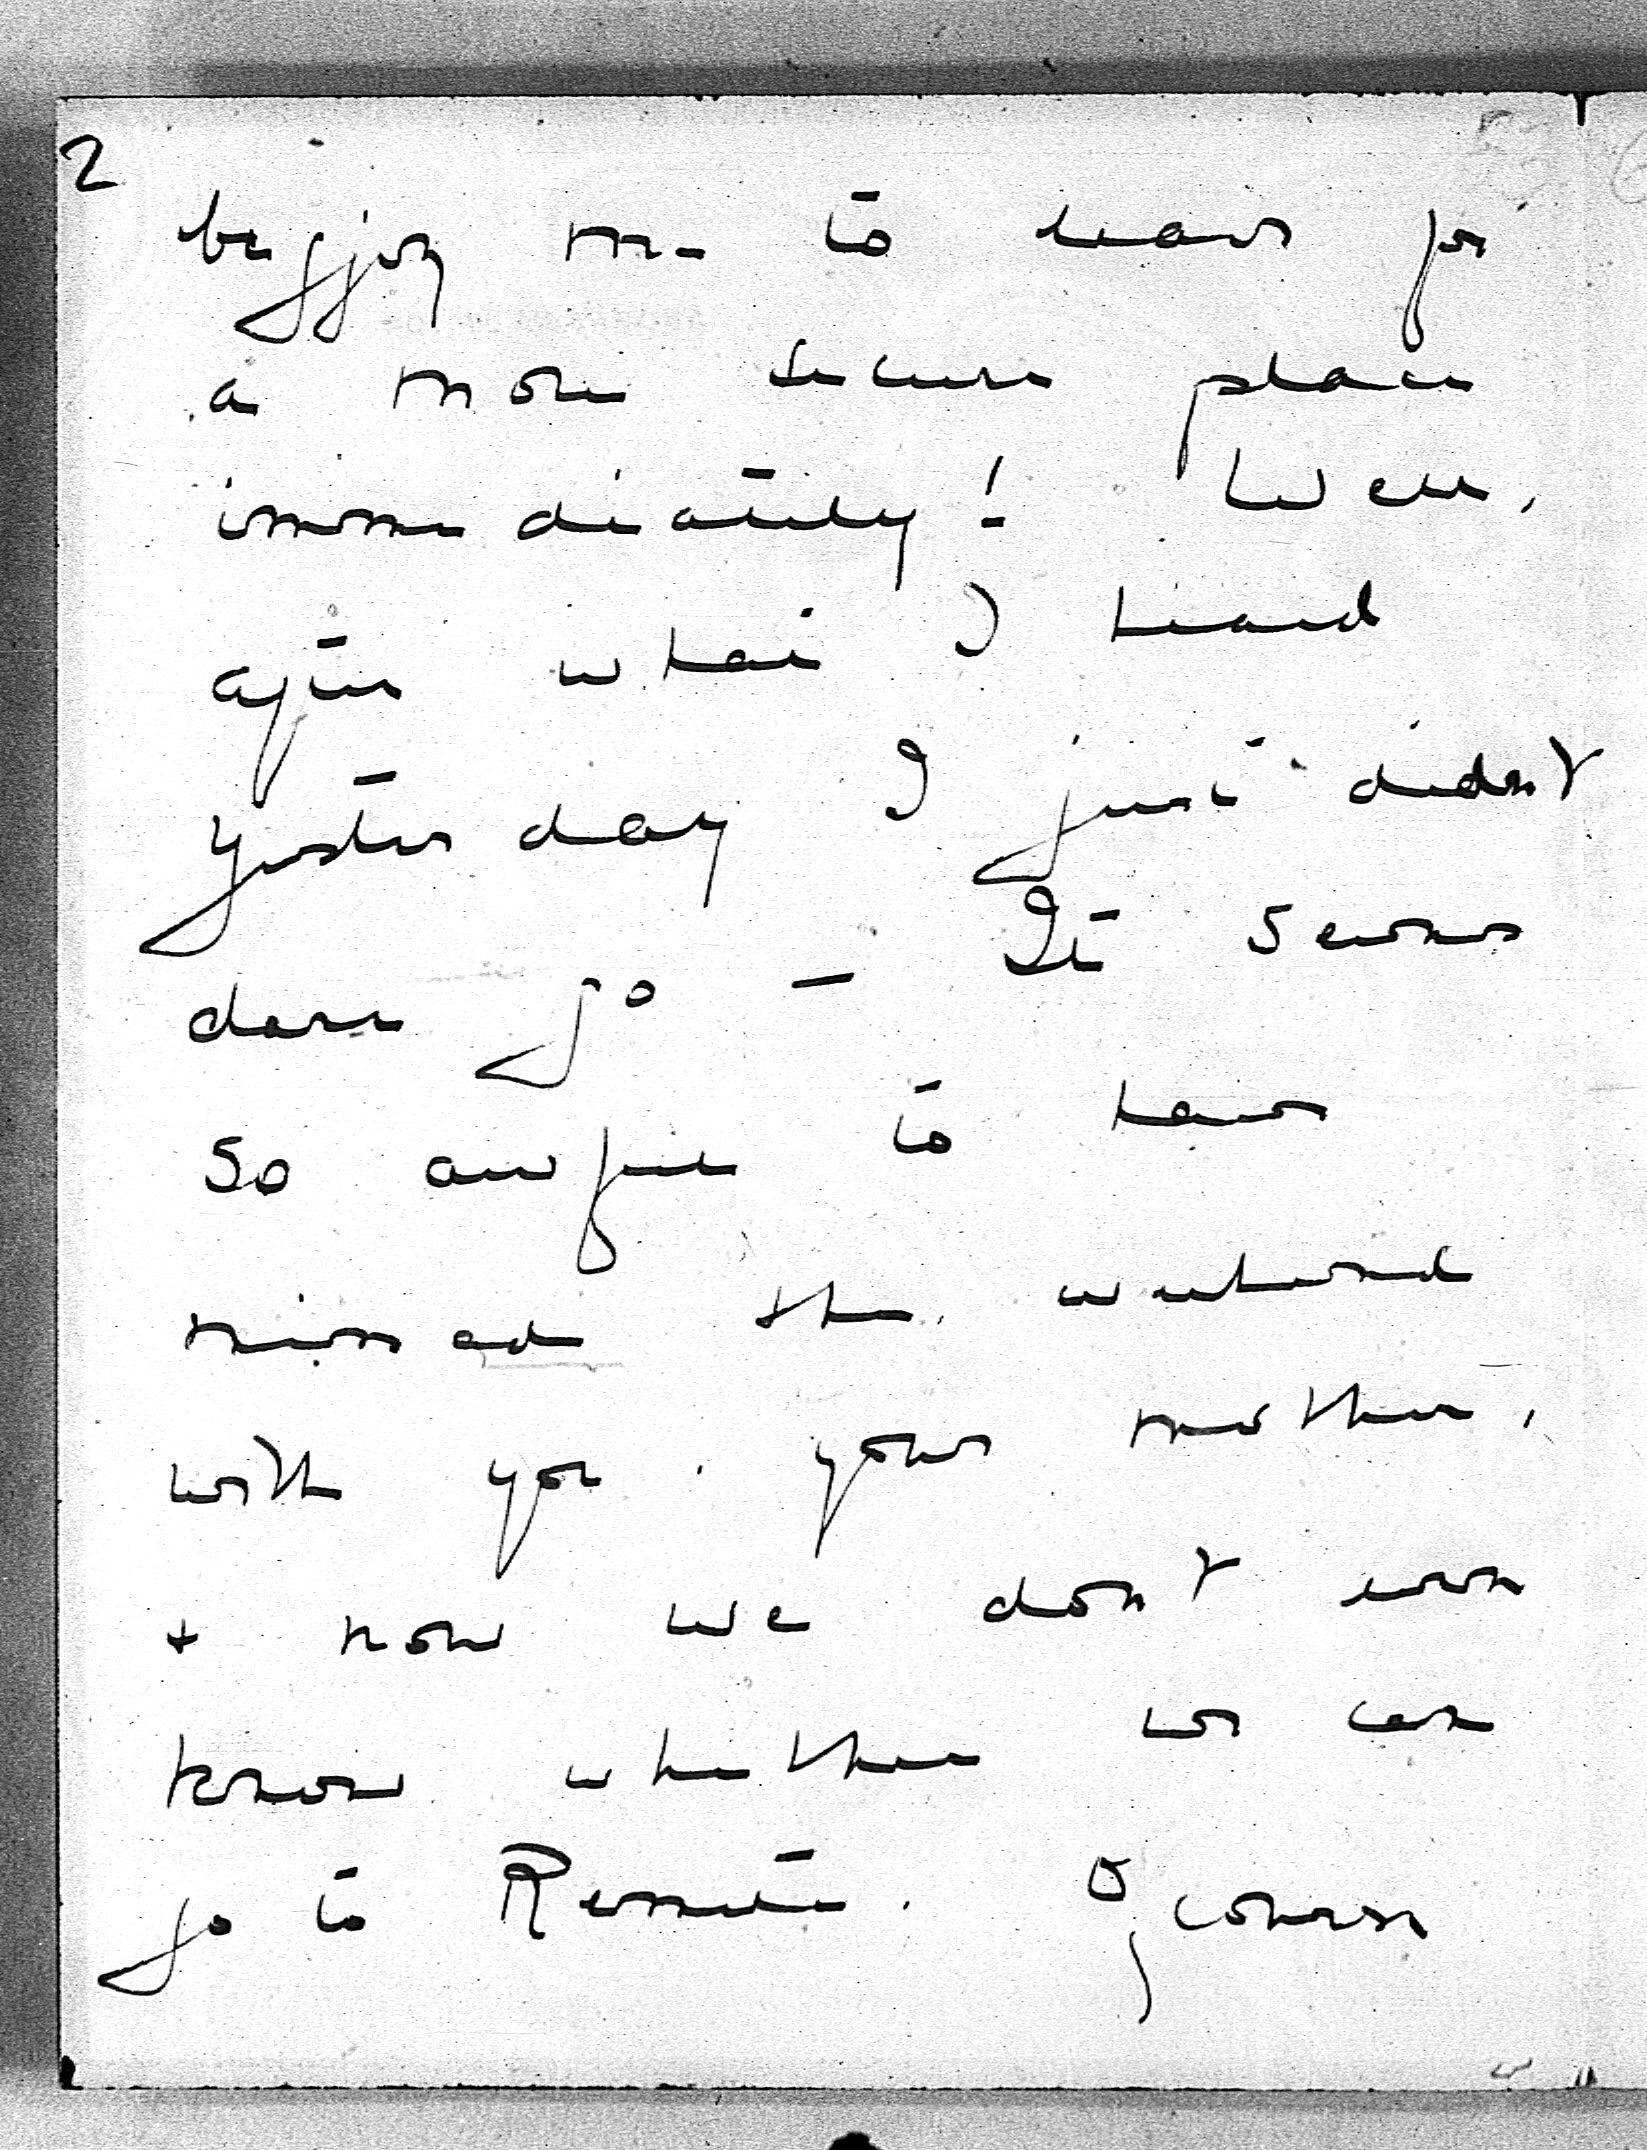 2
begging me to leave for
a more secure place
immediately! Well,
after what I heard
yesterday I just didn't
dare go — It seems
so awful to have
missed the weekend
with you & your mother,
+ now we don't even
know whether we can
go to . Of course